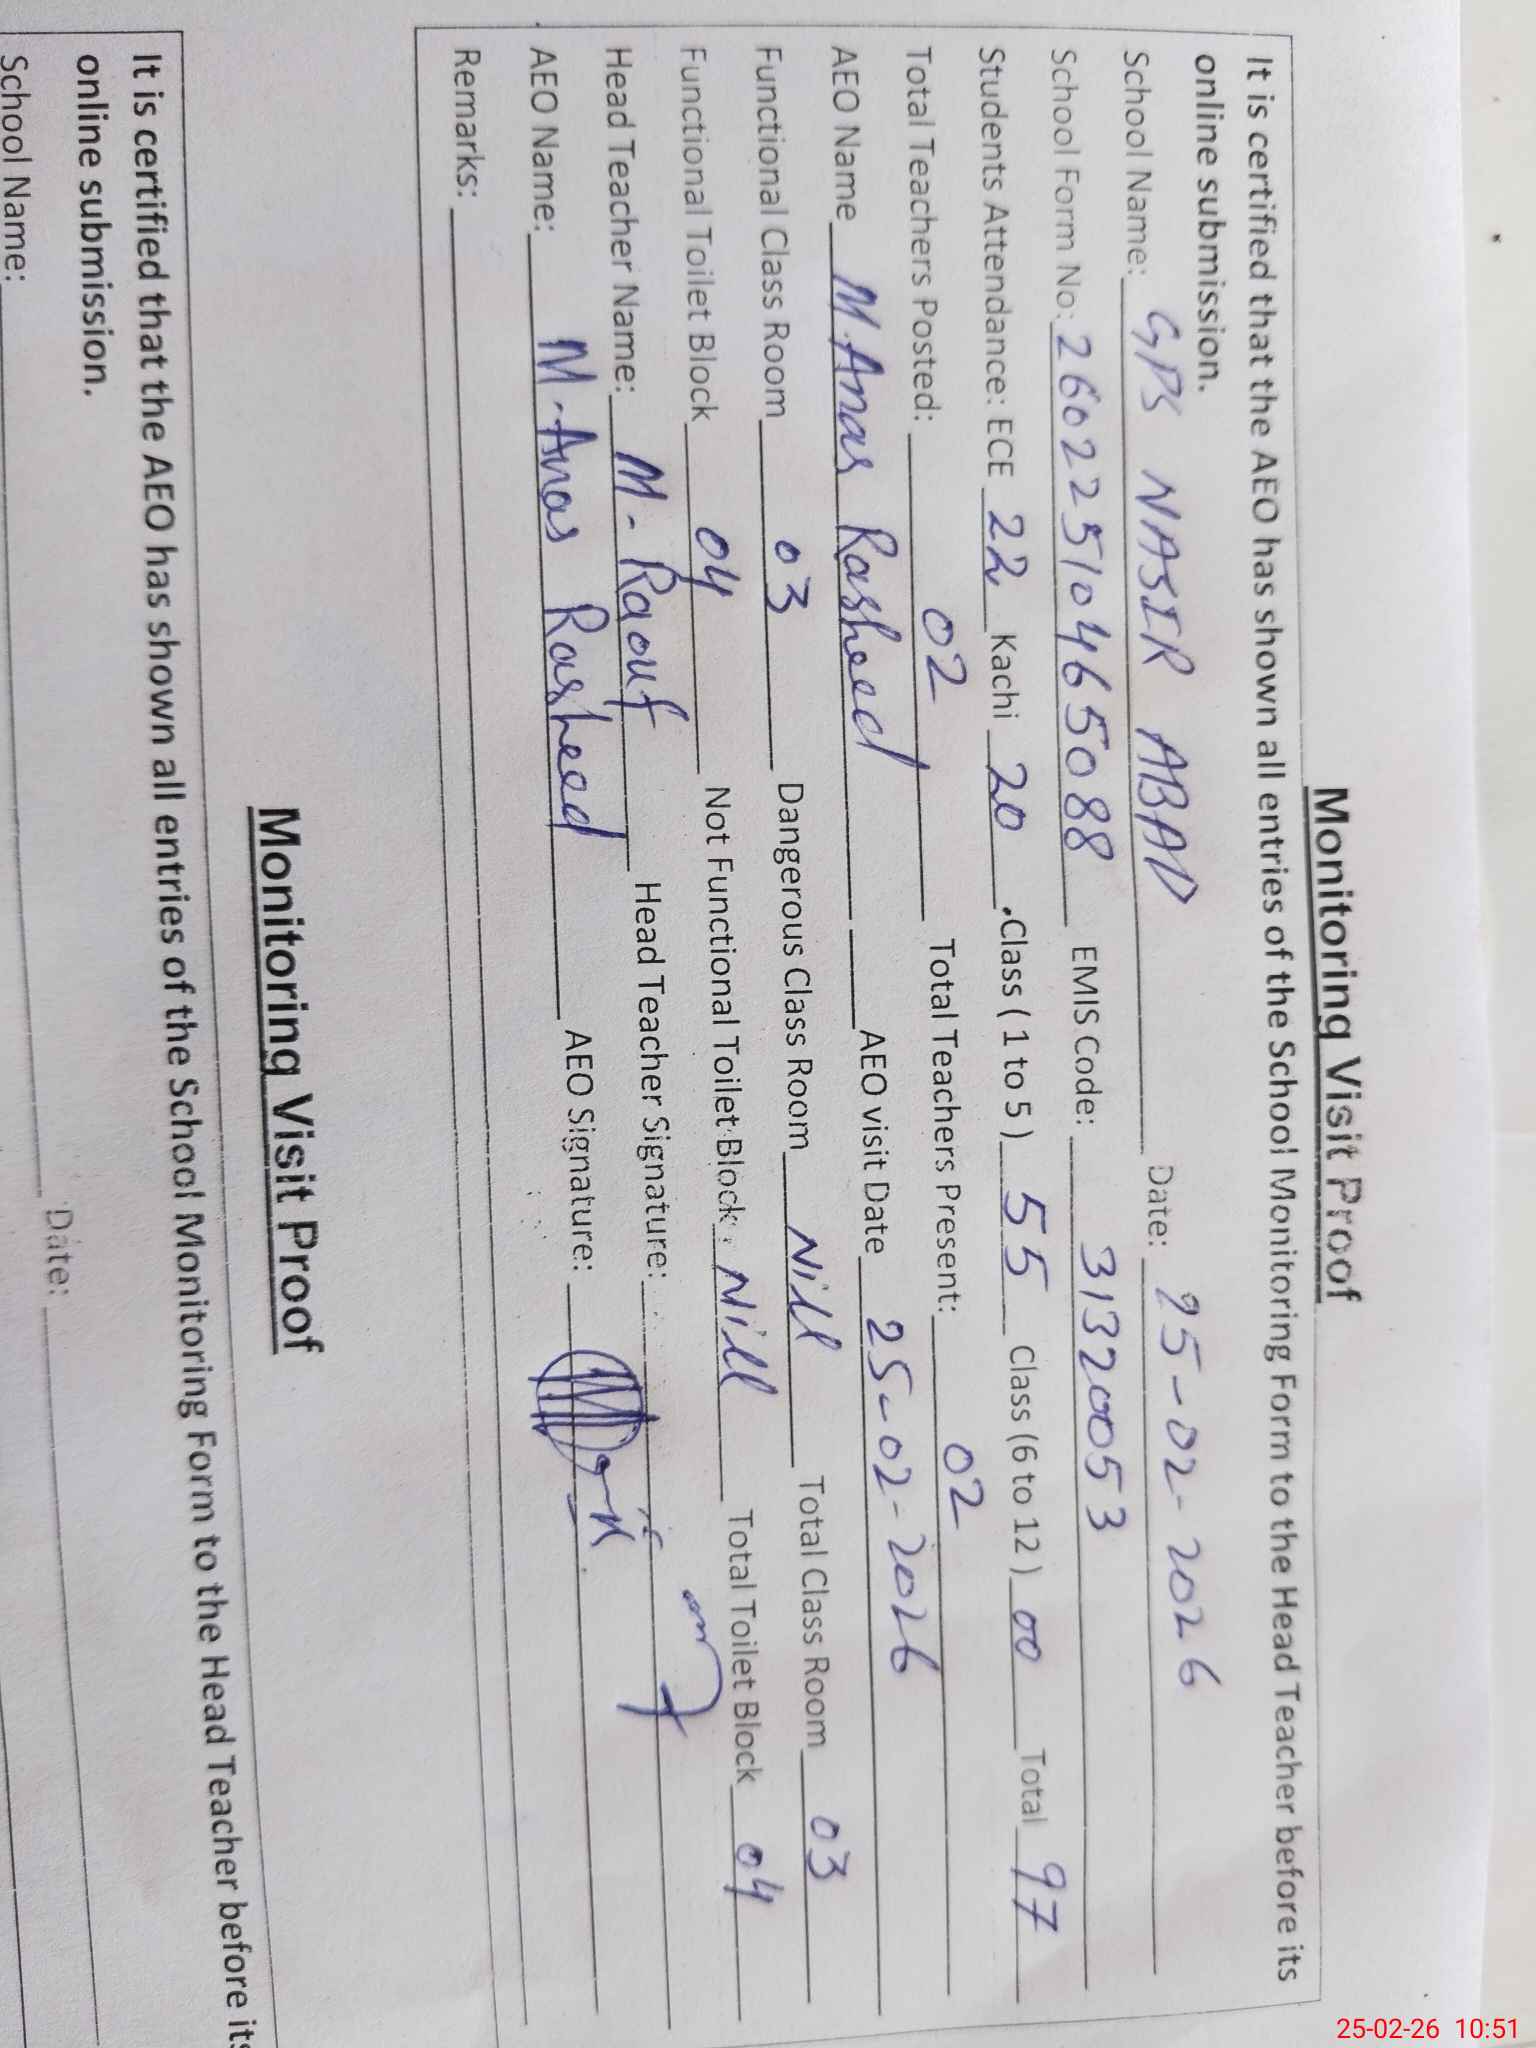 Monitoring Visit Proof
It is certified that the AEO has shown all entries of the School Monitoring Form to the Head Teacher before its
online submission.
School Name: GPS NASIR ABAD Date: 25-02-2026
School Form No: 260225104665088 EMIS Code: 31320053
Students Attendance: ECE 22 Kachi 20 .Class (1 to 5) 55 Class (6 to 12) 00 Total 97
Total Teachers Posted: 02 Total Teachers Present: 02
AEO Name M.Anas Rasheed AEO visit Date 25-02-2026
Functional Class Room 03 Dangerous Class Room Nill Total Class Room 03
Functional Toilet Block 04 Not Functional Toilet Block Nill Total Toilet Block 04
Head Teacher Name: M-Raouf Head Teacher Signature:
AEO Name: M-Anas Rasheed AEO Signature:
Remarks:
Monitoring Visit Proof
It is certified that the AEO has shown all entries of the School Monitoring Form to the Head Teacher before its
online submission.
School Name: Date:
25-02-26 10:51